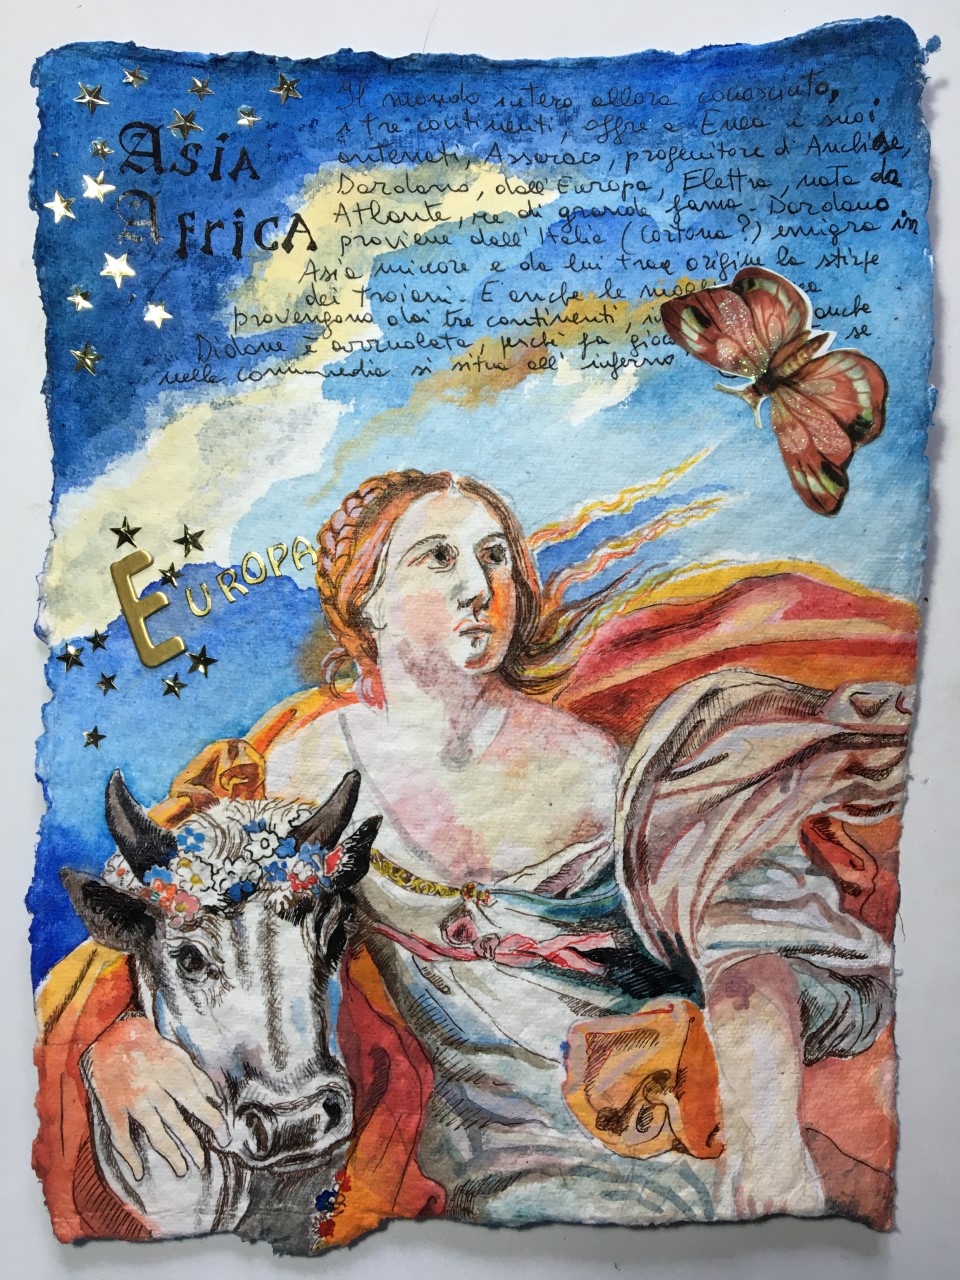 Asia
Africa
Il mondo intero allora conosciuto,
i tre continenti, offre a Enea i suoi
antenati, Assaraco, progenitore d'Anchise,
Dardano, dall'Europa, Elettra, nata da
Atlante, re di grande fama. Dardano
proviene dall'Italia (Cortona?) emigra in
Asia minore e da lui trae origine la stirpe
dei Troiani. E anche le mogli
provengono dai tre continenti, anche
Didone è arruolata, perché fa se
nella commedia si situa all'inferno
Europa